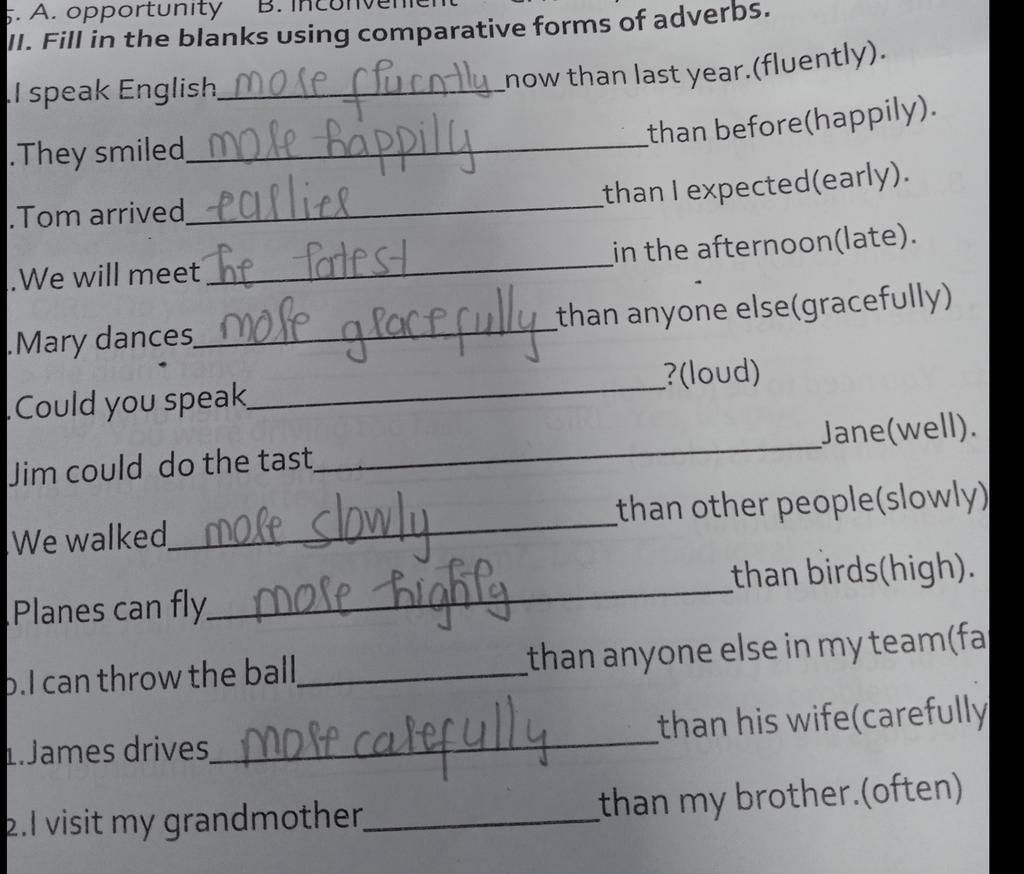 5. A. opportunity B. Inconvenient
II. Fill in the blanks using comparative forms of adverbs.
.I speak English more fluently now than last year.(fluently).
.They smiled more happilly than before(happily).
.Tom arrived earlier than I expected(early).
.We will meet he latest in the afternoon(late).
.Mary dances more gracefully than anyone else(gracefully)
.Could you speak ?(loud)
Jim could do the tast Jane(well).
.We walked more slowly than other people(slowly)
.Planes can fly more highly than birds(high).
0.I can throw the ball than anyone else in my team(fa
1.James drives more carefully than his wife(carefully
2.I visit my grandmother than my brother.(often)